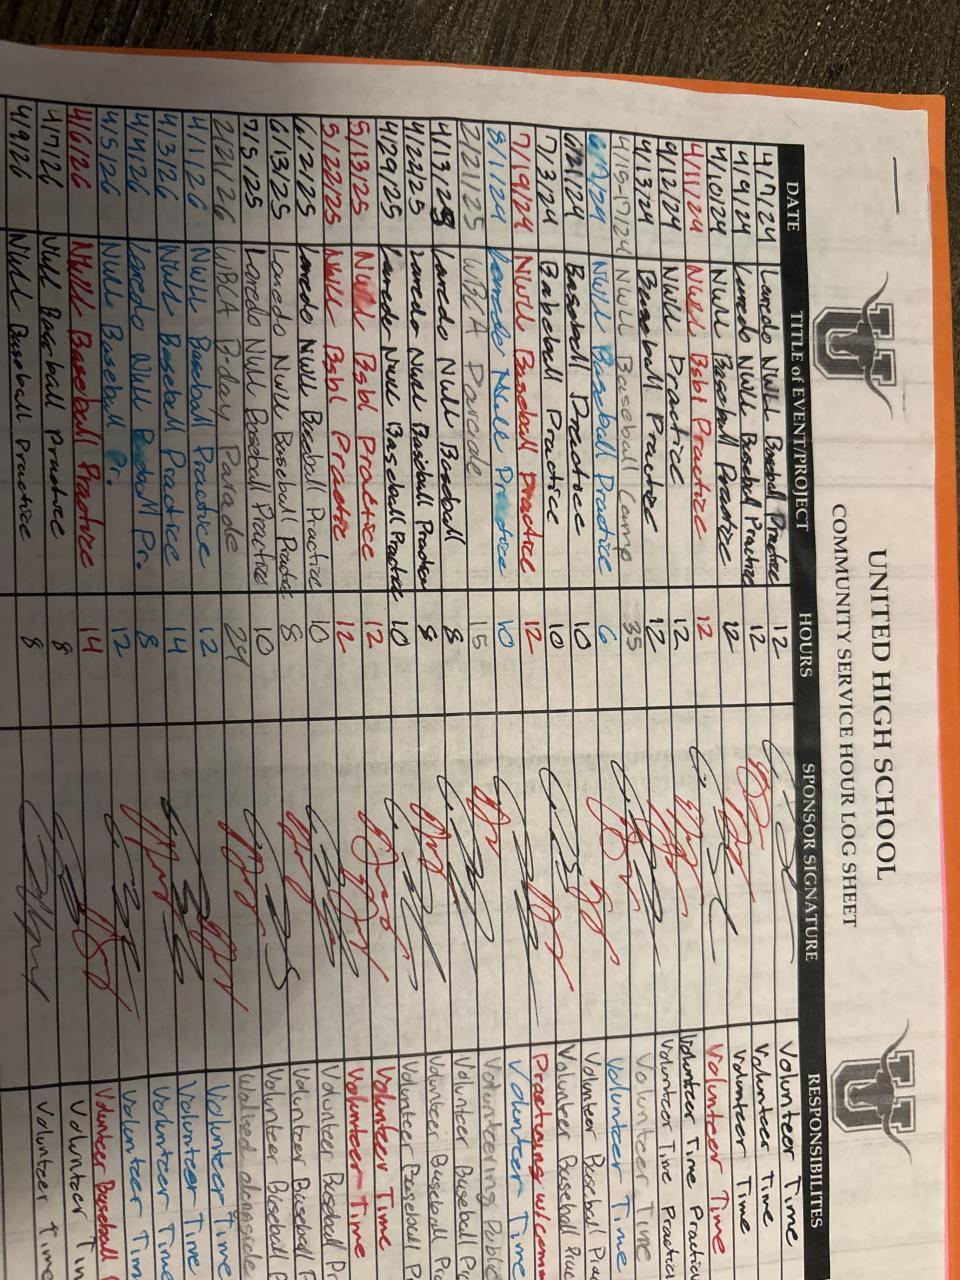 UNITED HIGH SCHOOL
COMMUNITY SERVICE HOUR LOG SHEET
DATE TITLE of EVENT/PROJECT HOURS SPONSOR SIGNATURE RESPONSIBILITES
4/7/24 Laredo NWLL Baseball Practice 12 Volunteer Time
4/9/24 Laredo NWLL Baseball Practize 12 Volunteer Time
4/10/24 NWLL Baseball Practize 12 Volunteer Time
4/11/24 NWLL Bsbl Practize 12 Volunteer Time
4/12/24 NWLL Practice 12 Volunteer Time Practice
4/13/24 Baseball Practize 12 Volunteer Time Practice
4/15-17/24 NWLL Baseball Camp 35 Volunteer Time
NWLL Baseball Practice 6 Volunteer Time
6/21/24 Baseball Practice 10 Volunteer Baseball Prac
7/3/24 Baseball Practice 10 Volunteer Baseball Prac
7/19/24 NWLL Baseball Practice 12 Practicing w/comm
8/1/24 NWLL Practice 10 Volunteer Time
2/21/25 WBCA Parade 15 Volunteering Public
4/13/25 Laredo NWLL Baseball 8 Volunteer Baseball Pr
4/22/25 Laredo NWLL Baseball Practice 8 Volunteer Baseball Pr
4/29/25 Laredo NWLL Baseball Practice 10 Volunteer Baseball Pr
5/13/25 NWLL Bsbl Practice 12 Volunteer Time
5/22/25 NWLL Bsbl Practice 12 Volunteer Time
6/2/25 Laredo NWLL Baseball Practice 10 Volunteer Baseball Pr
6/13/25 Laredo NWLL Baseball Practice 8 Volunteer Baseball P
7/5/25 Laredo NWLL Baseball Practice 10 Volunteer Baseball P
2/21/26 WBCA B-day Parade 24 Walked alongside
4/1/26 NWLL Baseball Practice 12 Volunteer Time
4/3/26 NWLL Baseball Practice 14 Volunteer Time
4/4/26 Laredo NWLL Baseball Pr. 8 Volunteer Time
4/5/26 NWLL Baseball Pr. 12 Volunteer Tim
4/6/26 NWLL Baseball Practize 14 Volunteer Baseball
4/7/26 NWLL Baseball Practice 8 Volunteer Tim
4/9/26 NWLL Baseball Practice 8 Volunteer Time